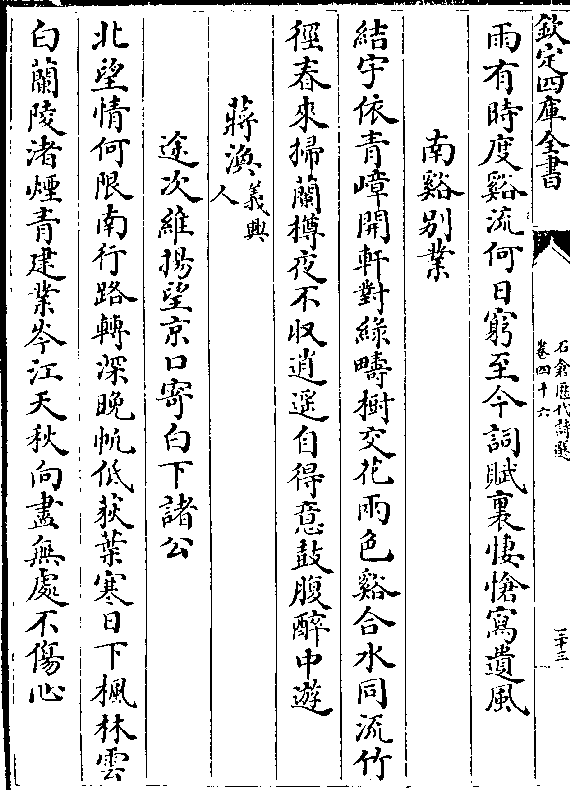 欽定四庫全書
石倉歷代詩選
卷四十六
三十三
雨有時度谿流何日窮至今詞賦裏悽愴寫遺風
南谿别業
結宇依青嶂開軒對綠疇樹交花兩色谿合水同流竹
徑春來掃蘭樽夜不収逍遥自得意鼓腹醉中遊
蔣渙義興人
途次維揚望京口寄白下諸公
北望情何限南行路轉深晚帆低荻葉寒日下楓林雲
白蘭陵渚煙青建業岑江天秋向盡無處不傷心